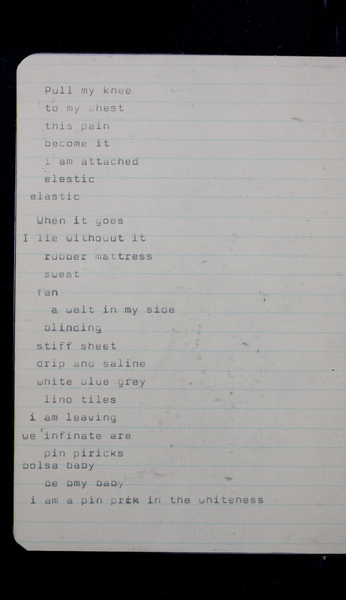 Pull my knee
to my chest
this pain
become it
i am attached
elestic
elastic
When it goes
I lie withouut it
rubber mattress
sweat
fan
a welt in my side
blinding
stiff sheet
drip and saline
white blue grey
lino tiles
i am leaving
we'infinate are
pin piricks
bolsa baby
be bmy baby
i am a pin prik in the whiteness